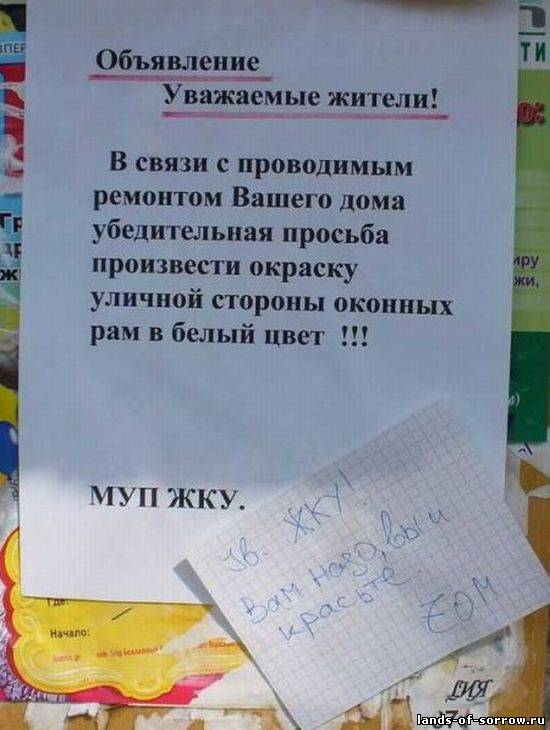 Объявление
Уважаемые жители!
В связи с проводимым
ремонтом Вашего дома
убедительная просьба
произвести окраску
уличной стороны оконных
рам в белый цвет !!!
МУП ЖКУ.
Ув. ЖКУ!
Вам надо, вы и
красьте.
ZOM
ТИ
Где:
Начало:
lands-of-sorrow.ru